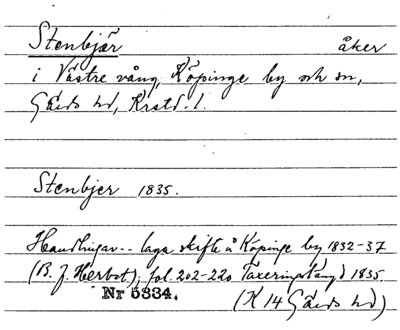 Stenbjär åker
i Västre vång, Köpinge by och sn,
Gärds hd, Krstd. l.
Stenbjer 1835.
Handlingar -- laga skifte å Köpinge by 1832-37
(B. J. Herbst), fol. 202-220 Taxeringslängd 1835.
Nr 5334.
(K 14 Gärds hd)